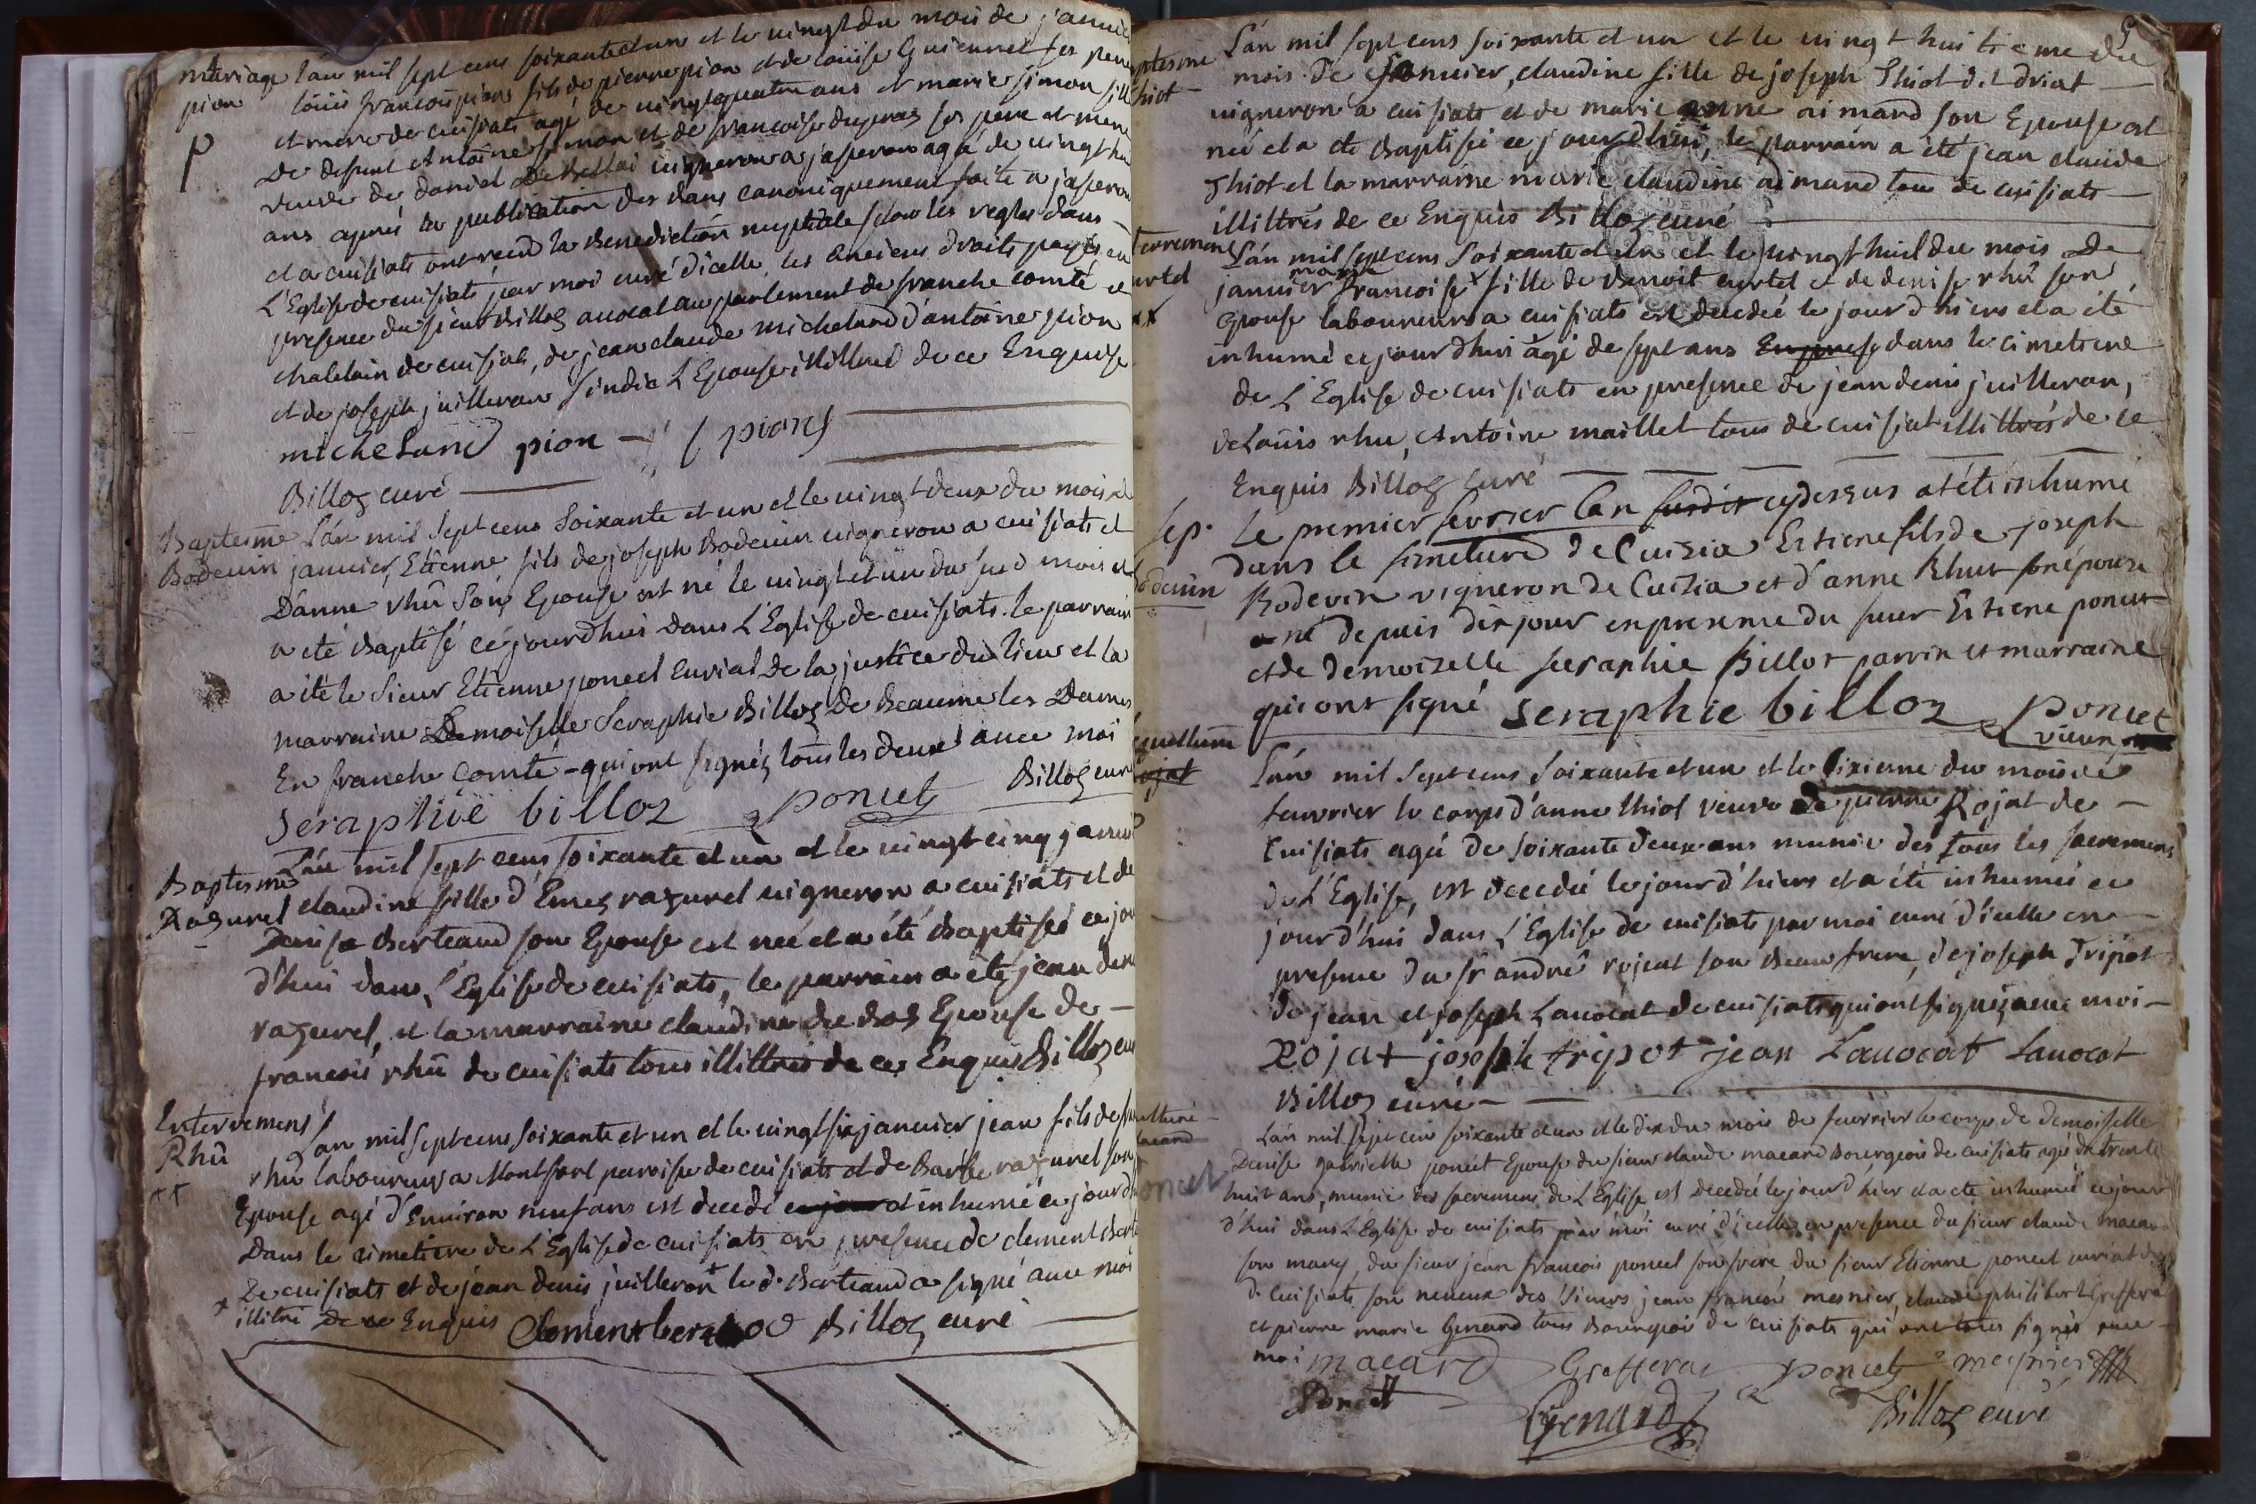 mariage L'an mil sept cens soixante et un et le vingt du mois de janvie
pion louis francois pion fils de pierre pion et de louise Guiennet ses pere
et mere de cuisiats agé de vingt quatre ans et marie simon fill
De defunt Antoine simon et de francoise dupras ses pere et mere
veuve de daniel vigneron a jasseron agé de vingt hui
ans aprés la publication des bans canoniquement faite a jasseron
et a cuisiats ont recu la Benediction nuptiale selon les regles dans
L'Eglise de cuisiats par moi curé d'icelle, les anciens droits payés en
presence du sieur Billoz avocat au parlement de franche comté et
chatelain de cuisiats, de jean claude micheland d'antoine pion
et de joseph juilleron sindic L'Epouse illitterée de ce Enquise
micheland pion pion
Billoz curé
Baptesme L'an mil sept cens soixante et un et le vingt deux du mois de
Bodevin janvier, Etienne fils de joseph Bodevin vigneron a cuisiats et
D'anne rhû son Epouse est né le vingt et un du susd mois et
a eté Baptisé cejourdhui dans L'Eglise de cuisiats. le parrain
a été le Sieur Etienne poncet curial de la justice du lieu et la
marraine Demoiselle Seraphie Billoz de Beaume les Dames
En franche Comté - qui ont signéz tous les deux avec moi
seraphie billoz poncet Billoz curé
Baptesme L'an mil sept cens soixante et un et le vingt cinq janvier
Razurel claudine fille d'Emez razurel vigneron a cuisiats et de
Denise Berteaud son Epouse est née et a été Baptisée ce jour
d'hui dans L'Eglise de cuisiats, le parrain a eté jean deni
razurel, et la marraine claudine Epouse de
francois rhû de cuisiats tous illittrés de ce Enquis Billoz curé
Enterremens L'an mil sept cens soixante et un et le vingt six janvier jean fils de
Rhû rhû laboureur a Montfort paroisse de cuisiats et de Barbe razurel son
Epouse agé d'Environ neuf ans est decedé et inhumé ce jourd
Dans le cimetiere de L'Eglise de cuisiats en presence de clement Bert
De cuisiats et de jean denis juilleron + led. Berteaud a signé avec moi
+ illitré De ce Enquis Clement Billoz curé
5
ptesme L'an mil sept cens soixante et un et le vingt huitieme du
hiot mois De Janvier, claudine fille de joseph Thiot dit driat
vigneron a cuisiats et de marie anne aimard son Epouse est
née et a eté Baptisée ce jour Dhui, le parrain a eté jean claude
Thiot et la marraine marie claudine aimard tous de cuisiats
illittrés de ce Enquis Billoz curé
terremen L'an mil sept cens soixante et un et le vingt huit du mois De
urtel janvier marie francoise fille de Benoit curtel et de denise rhû son
Epouse laboureurs a cuisiats est decedeé le jour d'hiers et a été
inhumé cejourdhui agé de sept ans dans le cimetiere
de L'Eglise de cuisiats en presence de jean denis juilleron,
de Louis rhu, Antoine maillet tous de cuisiats illittrés de ce
Enquis Billoz Curé
sep. Le premier fevrier lan susdit cydessus atété inhumé
dans le simetiere de Cuizia Estiene fils de joseph
Bodevin vigneron de Cuizia et d'anne Rhut son épouze
odevin né depuis dix jour en presence du sieur Estiene poncet
et de demoizelle seraphie Billot parrin et marraine
qui ont signé seraphie billoz poncet
vicen
L'an mil sept cens soixante et un et le sixieme du mois de
ojat fevvrier le corps d'anne thiot veuve de pierre Rojat de
Cuisiats agée de soixante deux ans munie des tous les sacremens
de L'Eglise, est decedée le jour d'hiers et a été inhumée ce
jour d'hui dans L'Eglise de cuisiats par moi curé d'icelle en
presence du sr andré rojeat son Beau frere, de joseph Tripot
de jean et joseph Lavocat de cuisiats qui ont signez avec moi
Rojat joseph tripot jean Lavocat Lavocat
Billoz curé
L'an mil sept cens soixante et un et le dix du mois de fevvrier le corps de demoiselle
acard Denise gabrielle poncet Epouse du sieur claude macard Bourgeois de cuisiats agée de trente
oncet huit ans, munie des sacremens de L'Eglise est decedée le jour d'hier et a eté inhumée ce jour
d'hui dans L'Eglise de cuisiats par moi curé d'icelle en presence du sieur claude macar
son mary, du sieur jean francois poncet son frere du sieur Etienne poncet curial
de Cuisiats son neveux des Sieurs jean francois mesnier, claude philibert Grefferat
et pierre marie Genard tous Bourgeois de cuisiats qui ont tous signés avec
moi macard Grefferat poncet mesnier
poncet Genard Billoz curé